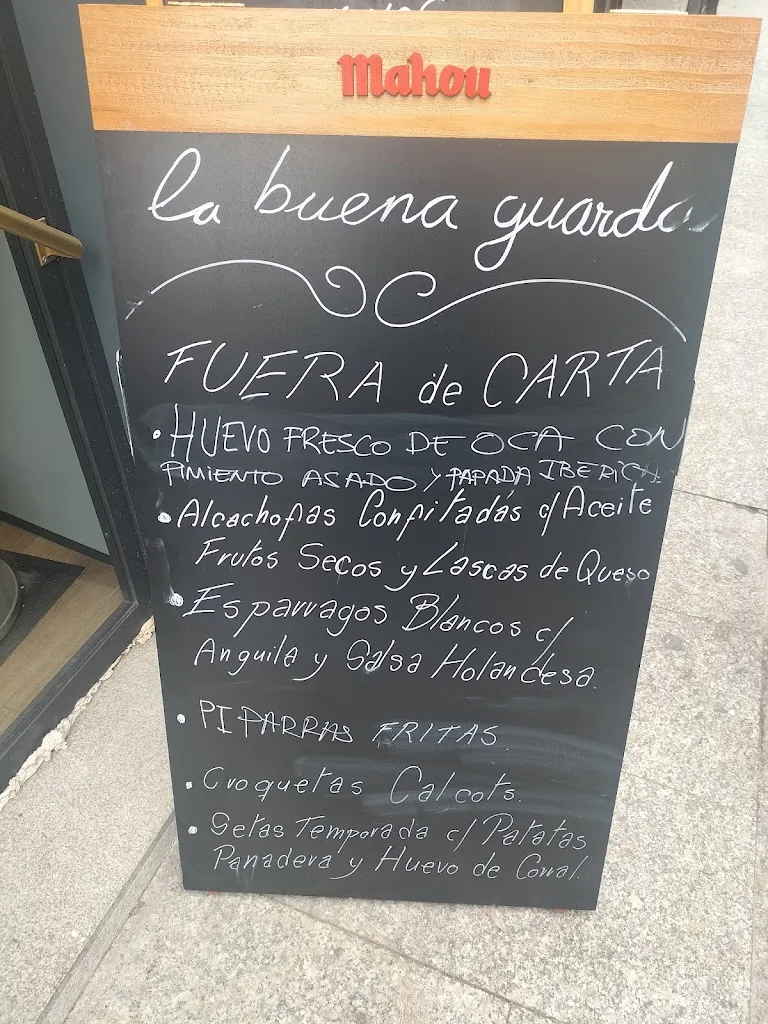 Mahou
la buena guarda
FUERA de CARTA
• HUEVO FRESCO DE OCA CON
PIMIENTO ASADO Y PAPADA IBERICA
• Alcachofas Confitadas c/ Aceite
Frutos Secos y Lascas de Queso
• Esparragos Blancos c/
Anguila y Salsa Holandesa.
• PIPARRAS FRITAS
• Croquetas Calcots.
• Setas Temporada c/ Patatas
Panadera y Huevo de Corral.